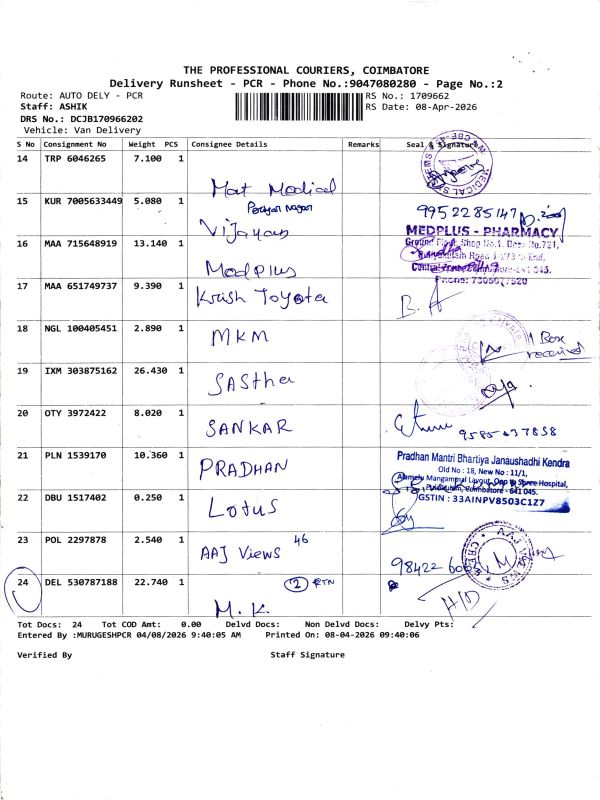 THE PROFESSIONAL COURIERS, COIMBATORE
Delivery Runsheet - PCR - Phone No.:9047080280 - Page No.:2
Route: AUTO DELY - PCR
RS No.: 1709662
Staff: ASHIK
RS Date: 08-Apr-2026
DRS No.: DCJB170966202
Vehicle: Van Delivery
S No Consignment No Weight PCS Consignee Details Remarks Seal & Signature
14 TRP 6046265 7.100 1 Mat Medical
15 KUR 7005633449 5.080 1 Vijayan 9952285147
16 MAA 715648919 13.140 1 Medplus
MEDPLUS - PHARMACY
Phone: 7305077520
17 MAA 651749737 9.390 1 Krish Toyota
18 NGL 100405451 2.890 1 MKM
1 Box
received
19 IXM 303875162 26.430 1 SAStha
20 OTY 3972422 8.020 1 SANKAR
9585037858
21 PLN 1539170 10.360 1 PRADHAN
Pradhan Mantri Bhartiya Janaushadhi Kendra
Old No : 18, New No : 11/1,
Coimbatore - 641 045.
GSTIN : 33AINPV8503C1Z7
22 DBU 1517402 0.250 1 Lotus
23 POL 2297878 2.540 1 AAJ Views 46
98422
24 DEL 530787188 22.740 1 M. K. 2 RTN
H/D
Tot Docs: 24 Tot COD Amt: 0.00 Delvd Docs: Non Delvd Docs: Delvy Pts:
Entered By :MURUGESHPCR 04/08/2026 9:40:05 AM Printed On: 08-04-2026 09:40:06
Verified By Staff Signature